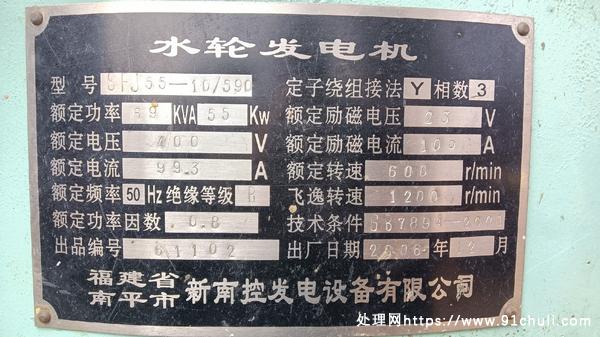 水轮发电机
型号 SFJ55-10/590 定子绕组接法 Y 相数 3
额定功率 69 KVA 55 Kw 额定励磁电压 23 V
额定电压 400 V 额定励磁电流 100 A
额定电流 99.3 A 额定转速 600 r/min
额定频率 50 Hz 绝缘等级 B 飞逸转速 1200 r/min
额定功率因数 0.8 技术条件 GB7894-2001
出品编号 61102 出厂日期 2006 年 12 月
福建省南平市 新南控发电设备有限公司
处理网https://www.91chuli.com/